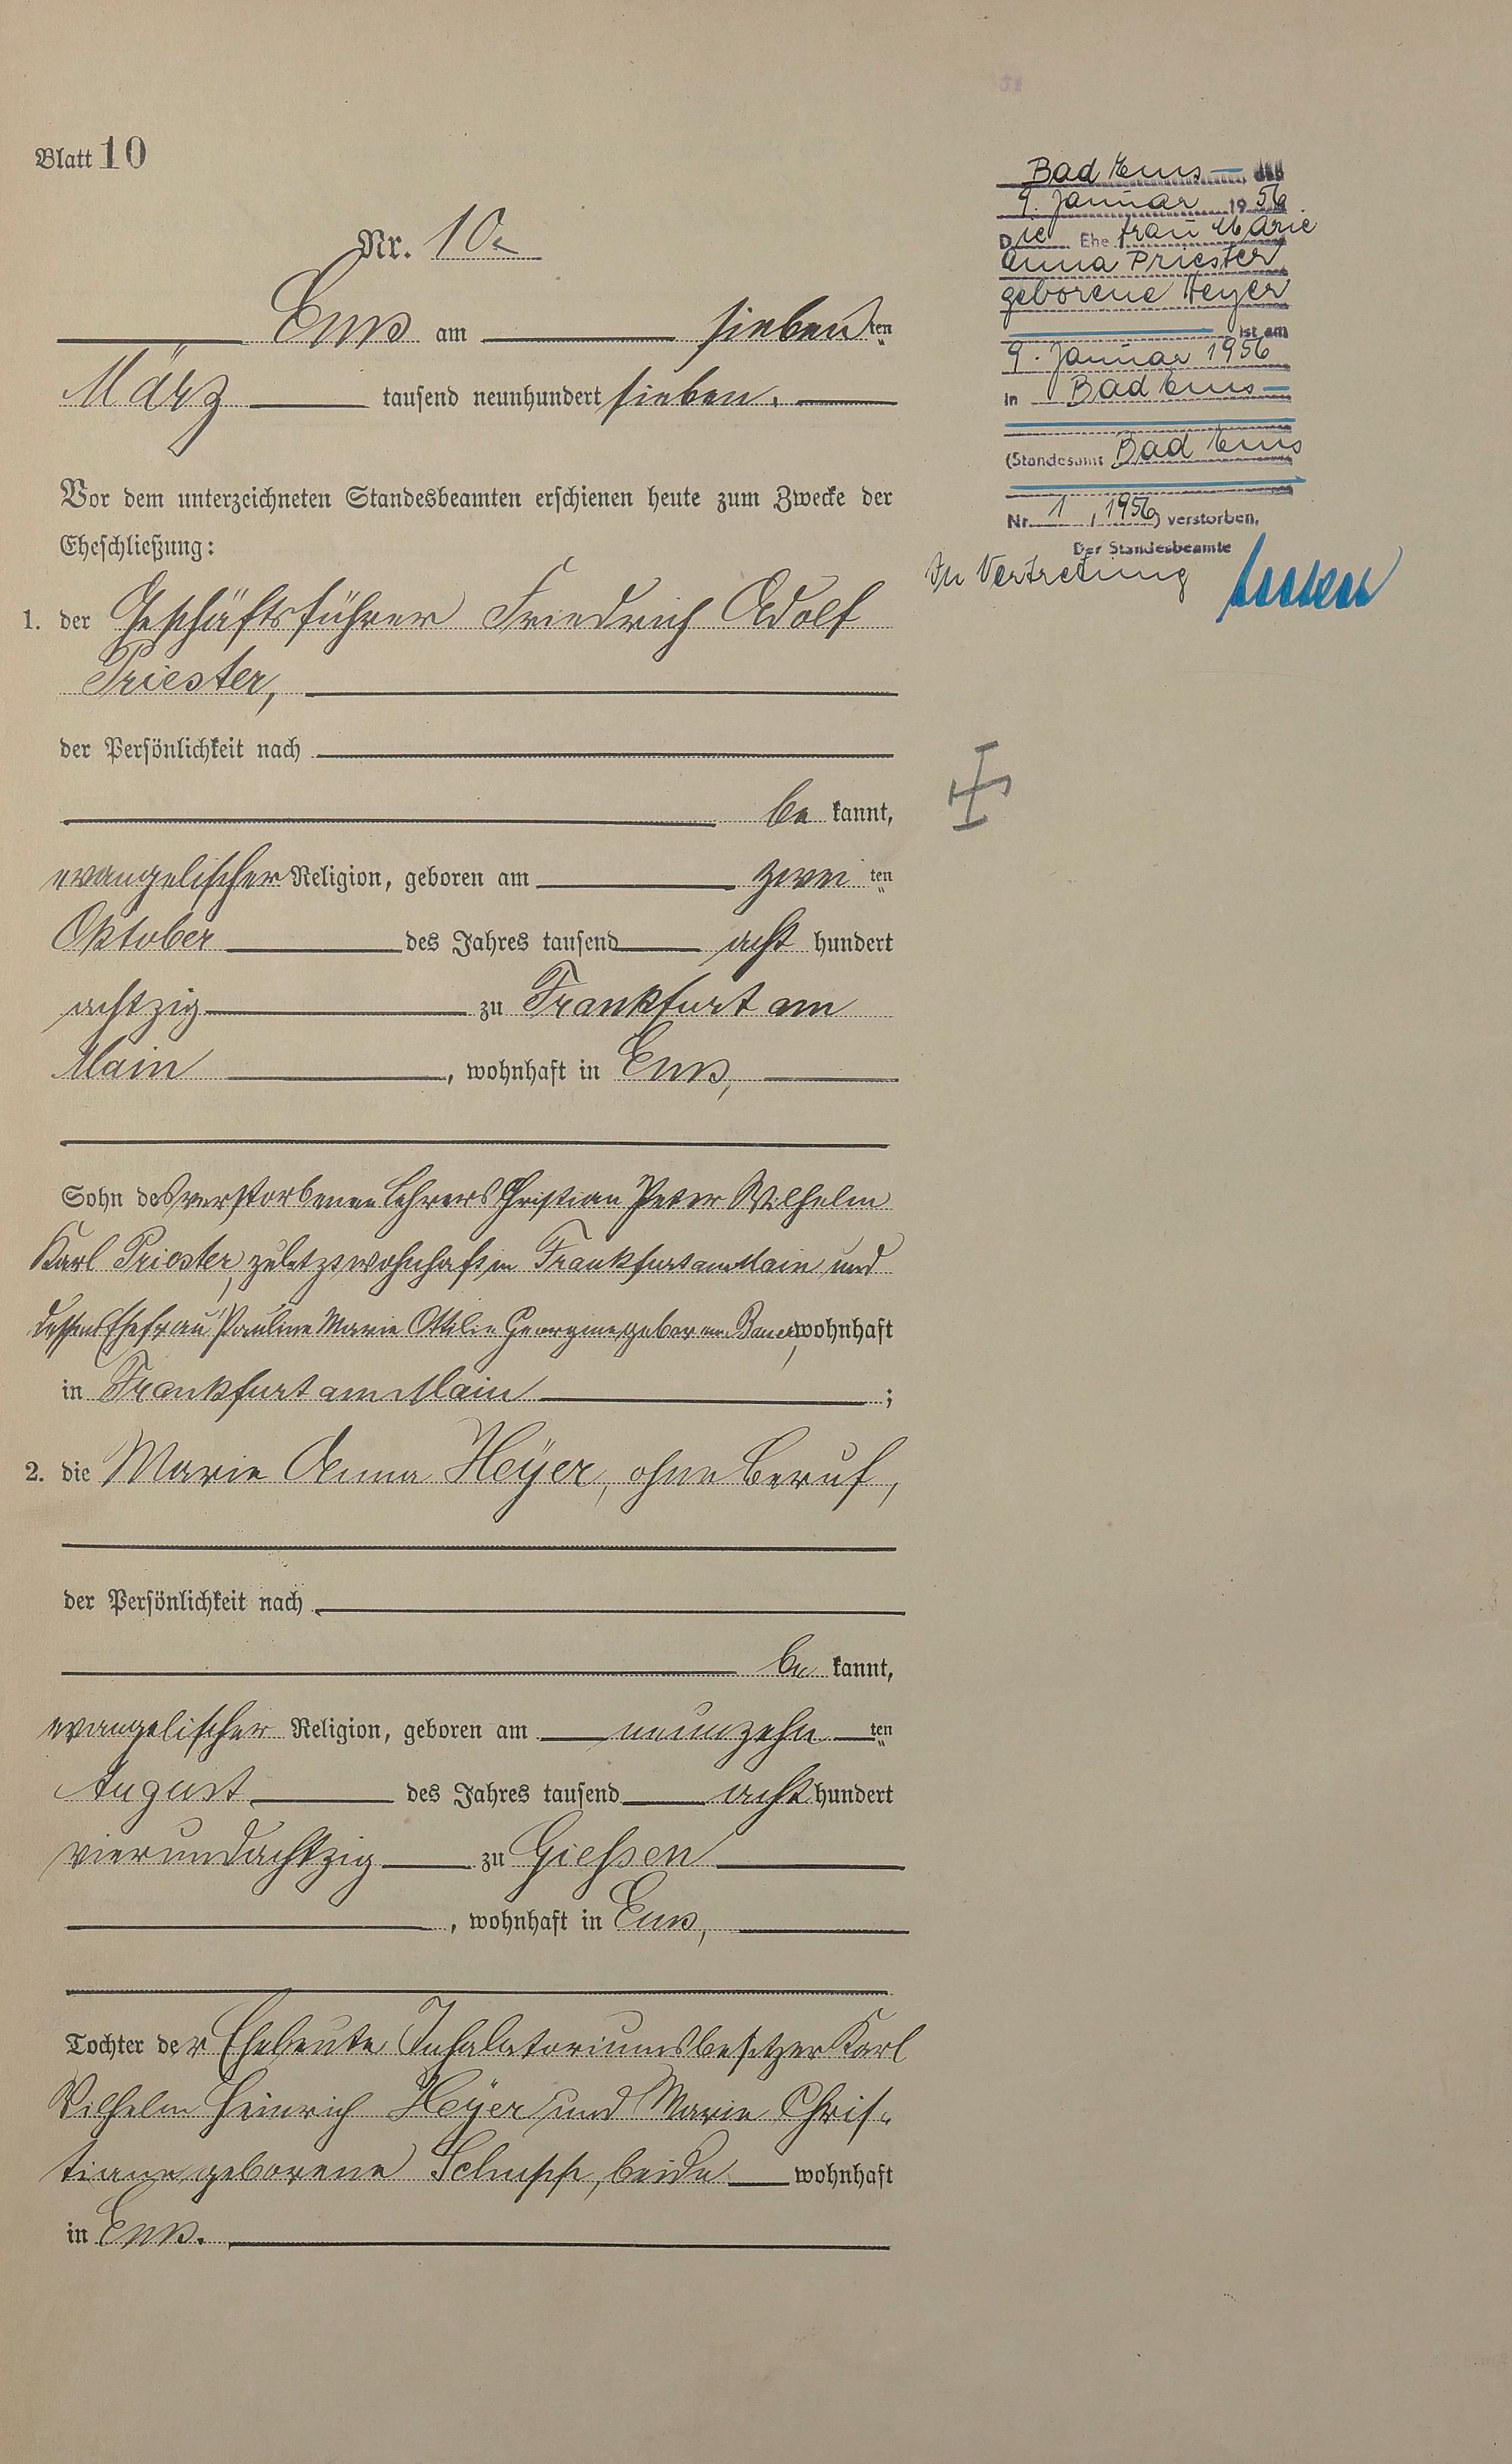 Blatt 10
Nr. 10.
Ems am sieben ten
März tausend neunhundert sieben.
Vor dem unterzeichneten Standesbeamten erschienen heute zum Zwecke der
Eheschließung:
1. der Geschäftsführer Friedrich Adolf
Priester,
der Persönlichkeit nach
be kannt,
evangelischer Religion, geboren am zwei ten
Oktober des Jahres tausend acht hundert
achtzig zu Frankfurt am
Main, wohnhaft in Ems,
Sohn des verstorbenen Lehrers Christian Peter Wilhelm
Karl Priester, zuletzt wohnhaft in Frankfurt am Main und
dessen Ehefrau Pauline Marie Ottilie Georgine geborene Bauer, wohnhaft
in Frankfurt am Main ;
2. die Marie Anna Heÿer, ohne Beruf,
der Persönlichkeit nach
be kannt,
evangelischer Religion, geboren am neunzehn ten
August des Jahres tausend acht hundert
vierundachtzig zu Giessen
, wohnhaft in Ems,
Tochter der Eheleute Inhalatoriumsbesitzer Karl
Wilhelm Heinrich Heÿer und Marie Chris-
tiane geborene Schupp, beide wohnhaft
in Ems.
Bad Ems, den
9. Januar 1956
Die Ehefrau Marie
Anna Priester
geborene Heyer
ist am
9. Januar 1956
in Bad Ems
(Standesamt Bad Ems
Nr. 1, 1956) verstorben.
Der Standesbeamte
In Vertretung